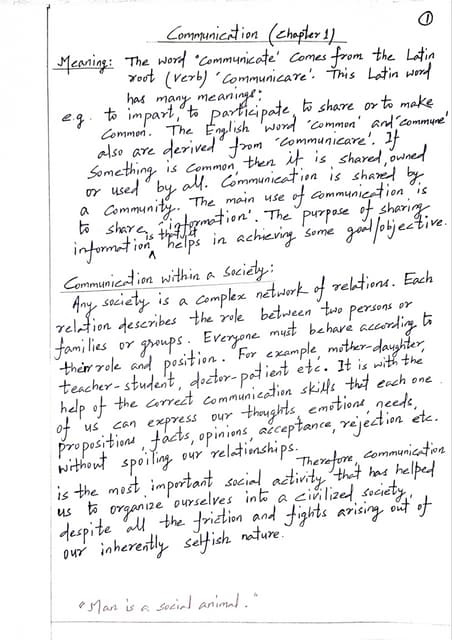 ①
Communication (Chapter 1)
Meaning: The word 'Communicate' comes from the Latin
root (verb) 'Communicare'. This Latin word
has many meanings:
e.g. to impart, to participate, to share or to make
Common. The English word 'common' and 'commune'
also are derived from 'communicare'. If
Something is common then it is shared, owned
or used by all. Communication is shared by
a community. The main use of communication is
to share 'information'. The purpose of sharing
information ^ is that it helps in achieving some goal/objective.
Communication within a Society:
Any society is a complex network of relations. Each
relation describes the role between two persons or
families or groups. Everyone must behave according to
their role and position. For example, mother-daughter,
teacher-student, doctor-patient etc. It is with the
help of the correct communication skills that each one
of us can express our thoughts, emotions, needs,
propositions, facts, opinions, acceptance, rejection etc.
without spoiling our relationships.
Therefore, communication
is the most important social activity that has helped
us to organize ourselves into a civilized society,
despite all the friction and fights arising out of
our inherently selfish nature.
"Man is a social animal."